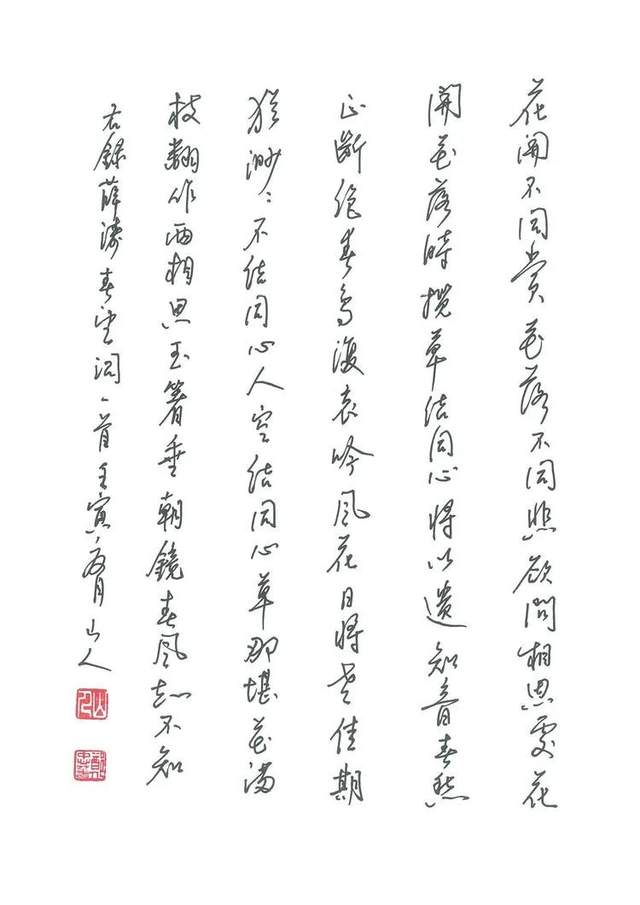 花開不同賞花落不同悲欲問相思處花
開花落時攬草結同心將以遺知音春愁
正斷絕春鳥復哀吟風花日將老佳期
猶渺〻不結同心人空結同心草那堪花滿
枝翻作兩相思玉箸垂朝鏡春風知不知
右錄薛濤春望詞一首壬寅月山人